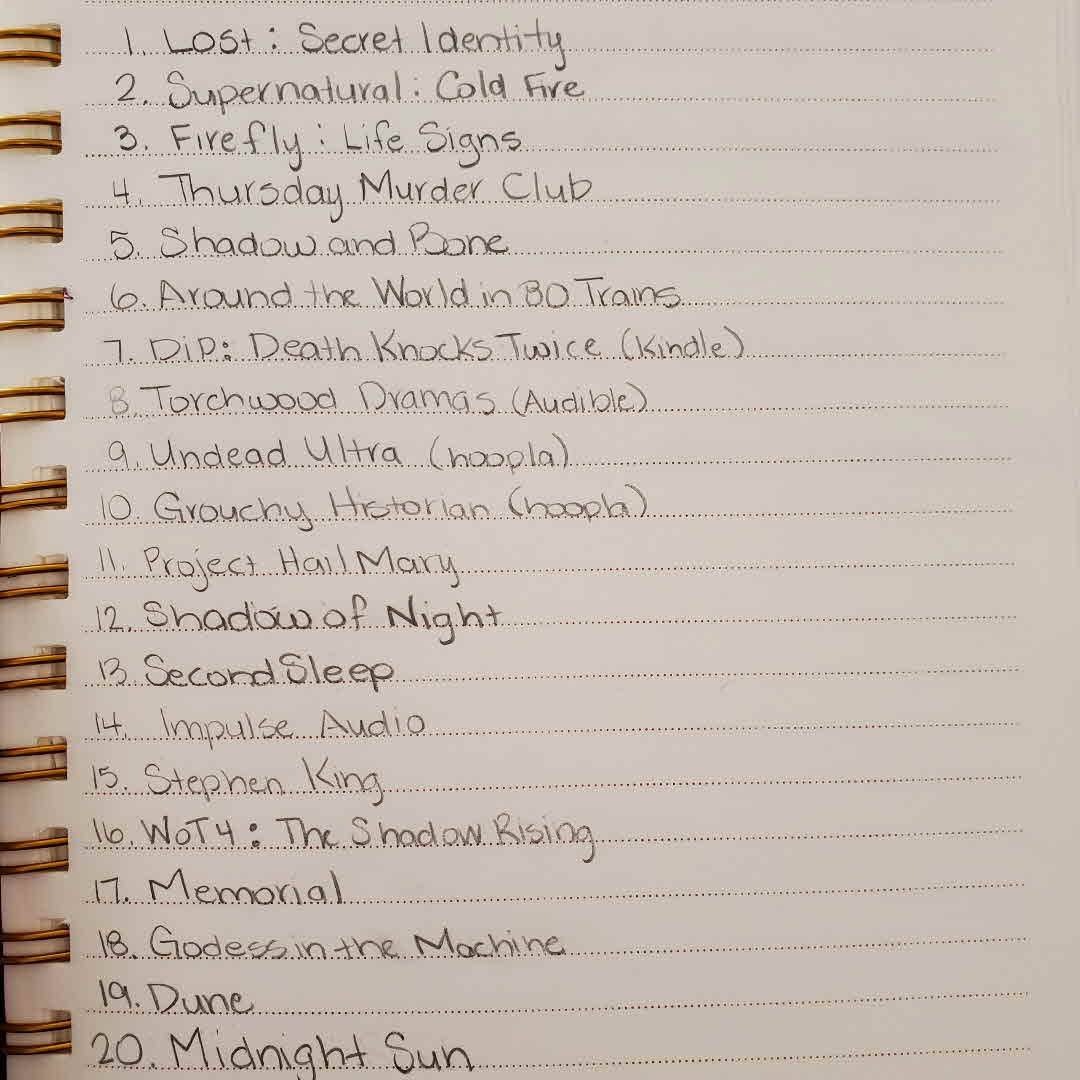 1. Lost: Secret Identity
2. Supernatural: Cold Fire
3. Firefly: Life Signs
4. Thursday Murder Club
5. Shadow and Bone
6. Around the World in 80 Trains
7. DiP: Death Knocks Twice (Kindle)
8. Torchwood Dramas (Audible)
9. Undead Ultra (hoopla)
10. Grouchy Historian (hoopla)
11. Project Hail Mary
12. Shadow of Night
13. Second Sleep
14. Impulse Audio
15. Stephen King
16. WoT4: The Shadow Rising
17. Memorial
18. Godess in the Machine
19. Dune
20. Midnight Sun